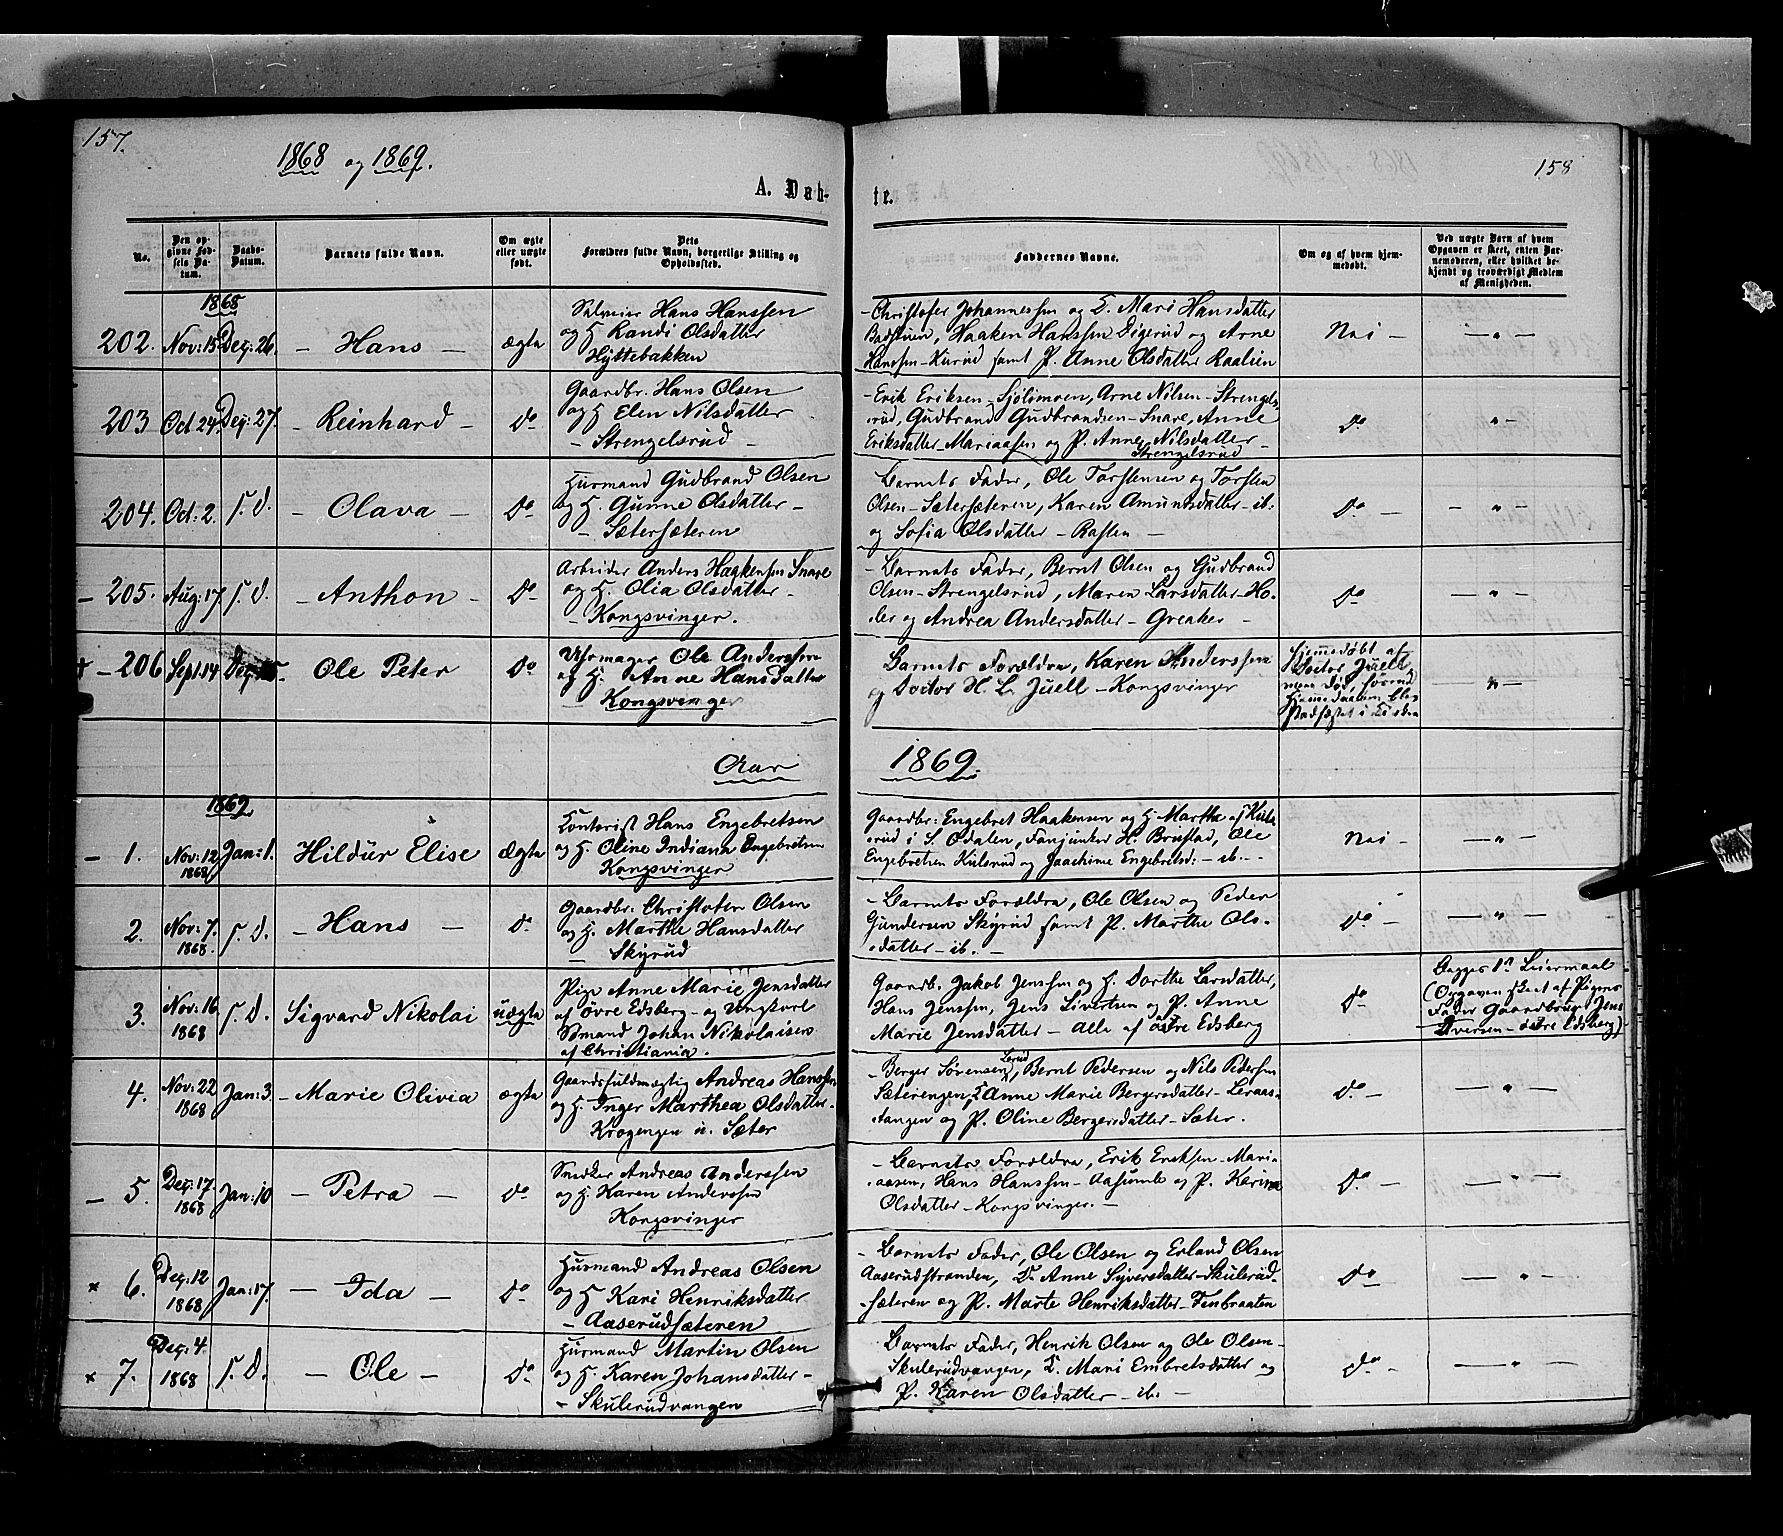 157.
1868 og 1869.
A. Døb-
No.
Den op-
givne Fød-
sels Da-
tum.
Daabs-
Datum.
Barnets fulde Navn.
Om ægte
eller uægte
født.
Dets
Forældres fulde Navn, borgerlige Stilling og
Opholdssted.
1868
202. Nov: 15 Dez: 26. – Hans – ægta
Hans Hanssen
og H. Randi Olsdatter
Hyttebakken
203 Oct 24. Dez: 27. – Reinhard – do
Gaardbr. Hans Olsen
og H. Elen Nilsdatter
– Strengelsrud –
204. Oct: 2. s. D. – Olava – do
Husmand Gudbrand Olsen
og H. Gunne Olsdatter –
– Sætersæteren
– 205. Aug: 17. s. D. – Anthon – do
Arbeider Anders Haakensen Snare
og H. Olia Olsdatter –
– Kongsvinger.
+ – 206 Sept. 14 Dez: Ole Peter do
Uhrmager Ole Anderssen
og H. Anne Hansdatter
Kongsvinger
Aar
1869
– 1. Nov: 12 1868 Jan: 1. Hildur Elise ægta
Contorist Hans Engebretsen
og H. Oline Indiana Engebretsen
Kongsvinger
2. Nov: 7. 1868 s. D. – Hans – do
Gaardbr. Christofer Olsen
og H. Marthe Hansdatter
– Skyrud
3. Nov: 16 1868 s. D. Sigvard Nikolai uægta
Pige Anne Marie Jensdatter
af Øvre Edsberg – og Ungkarl
Sømand Johan Nikolaisen
af Christiania.
4. Nov: 22 1868 Jan: 3. – Marie Olivia ægta
Gaardsfuldmægtig Andreas Hanssen
og H. Inger Marthea Olsdatter –
Krogengen u. Sæter
– 5. Dez: 17 1868 Jan: 10 – Petra – do
Snedker Andreas Anderssen
og H. Karen Anderssen
Kongsvinger
× 6. Dez: 12 1868 Jan: 17. – Ida – do
Husmand Andreas Olsen
og H. Kari Henriksdatter
– Aaserudsæteren
× 7. Dez: 4 1868 s. D. – Ole – do
Husmand Martin Olsen
og H. Karen Johansdatter –
– Skulerudvangen
158
te.
Faddernes Navne.
Om og af hvem hjem-
medøbt.
Ved uægte Barn af hvem
Opgaven er skeet, enten Bar-
nemoderen, eller hvilket be-
kjendt og troværdigt Medlem
af Menigheden.
– Christofer Johannessen og H. Mari Hansdatter
Haaken Hanssen Digerud og Arne
Hanssen Kurud samt P. Anne Olsdatter Raalien
Nei – – „ –
– Erik Eriksen – Sjølimoen, Arne Nilsen – Strengels-
rud, Gudbrand Gudbrandsen – Snare, Anne
Eriksdatter – Mariaasen og P. Anne Nilsdatter –
Strengelsrud
do „ –
– Barnets Fader, Ole Torstensen og Torsten
Olsen – Sætersæteren, Karen Amundsdatter – ib:
og Sofia Olsdatter – Rasten –
do – – „ –
– Barnets Fader, Bernt Olsen og Gudbrand
Olsen – Strengelsrud, Maren Larsdatter – Ho-
ler og Andrea Andersdatter – Greaker –
do – „ –
Barnets Forældre, Karen Anderssen
og Doctor H. L. Juell – Kongsvinger
Hjemmedøbt af
Doctor Juell,
men død, førend
Hjemmedaaben blev
stadfæstet i Kirken
„ –
1869.
Gaardbr: Engebret Haakensen og H. Marthe af Kuls-
rud i S. Odalen, Fanjunker H. Brustad, Ole
Engebretsen Kulsrud og Joachime Engebretsd: – ib. –
Nei – – „ –
– Barnets Forældre, Ole Olsen og Peder
Gundersen Skyrud samt P. Marthe Ols-
datter – ib. –
do – – „ –
Gaardb. Jakob Jenssen og H. Dorthe Larsdatter,
Hans Jenssen, Jens Sivertsen og P. Anne
Marie Jensdatter – alle af østre Edsberg
do –
Begges 1ste Leiermaal
(Opgaven skeet af Pigens
Fader Gaardbrug. Jens
Iversen – østre Edsberg)
– Berger Sørensen Lerud, Bernt Pedersen og Nils Pedersen
Sæterengen, H. Anne Marie Bergersdatter – Leraas-
tangen og P. Oline Bergersdatter – Sæter.
do – – „ –
– Barnets Forældre, Erik Eriksen – Mari-
aasen, Hans Hanssen – Aasumb og P. Karina
Olsdatter – Kongsvinger. –
do – – „ –
– Barnets Fader, Ole Olsen og Erland Olsen
Aaserudstranden, H. Anne Syversdatter – Skulerud-
sæteren og P. Marte Henriksdatter – Finbraaten
do – „ –
Barnets Fader, Henrik Olsen og Ole Olsen –
Skulerudvangen, H. Mari Embretsdatter og
P. Karen Olsdatter – ib. –
do – „ –